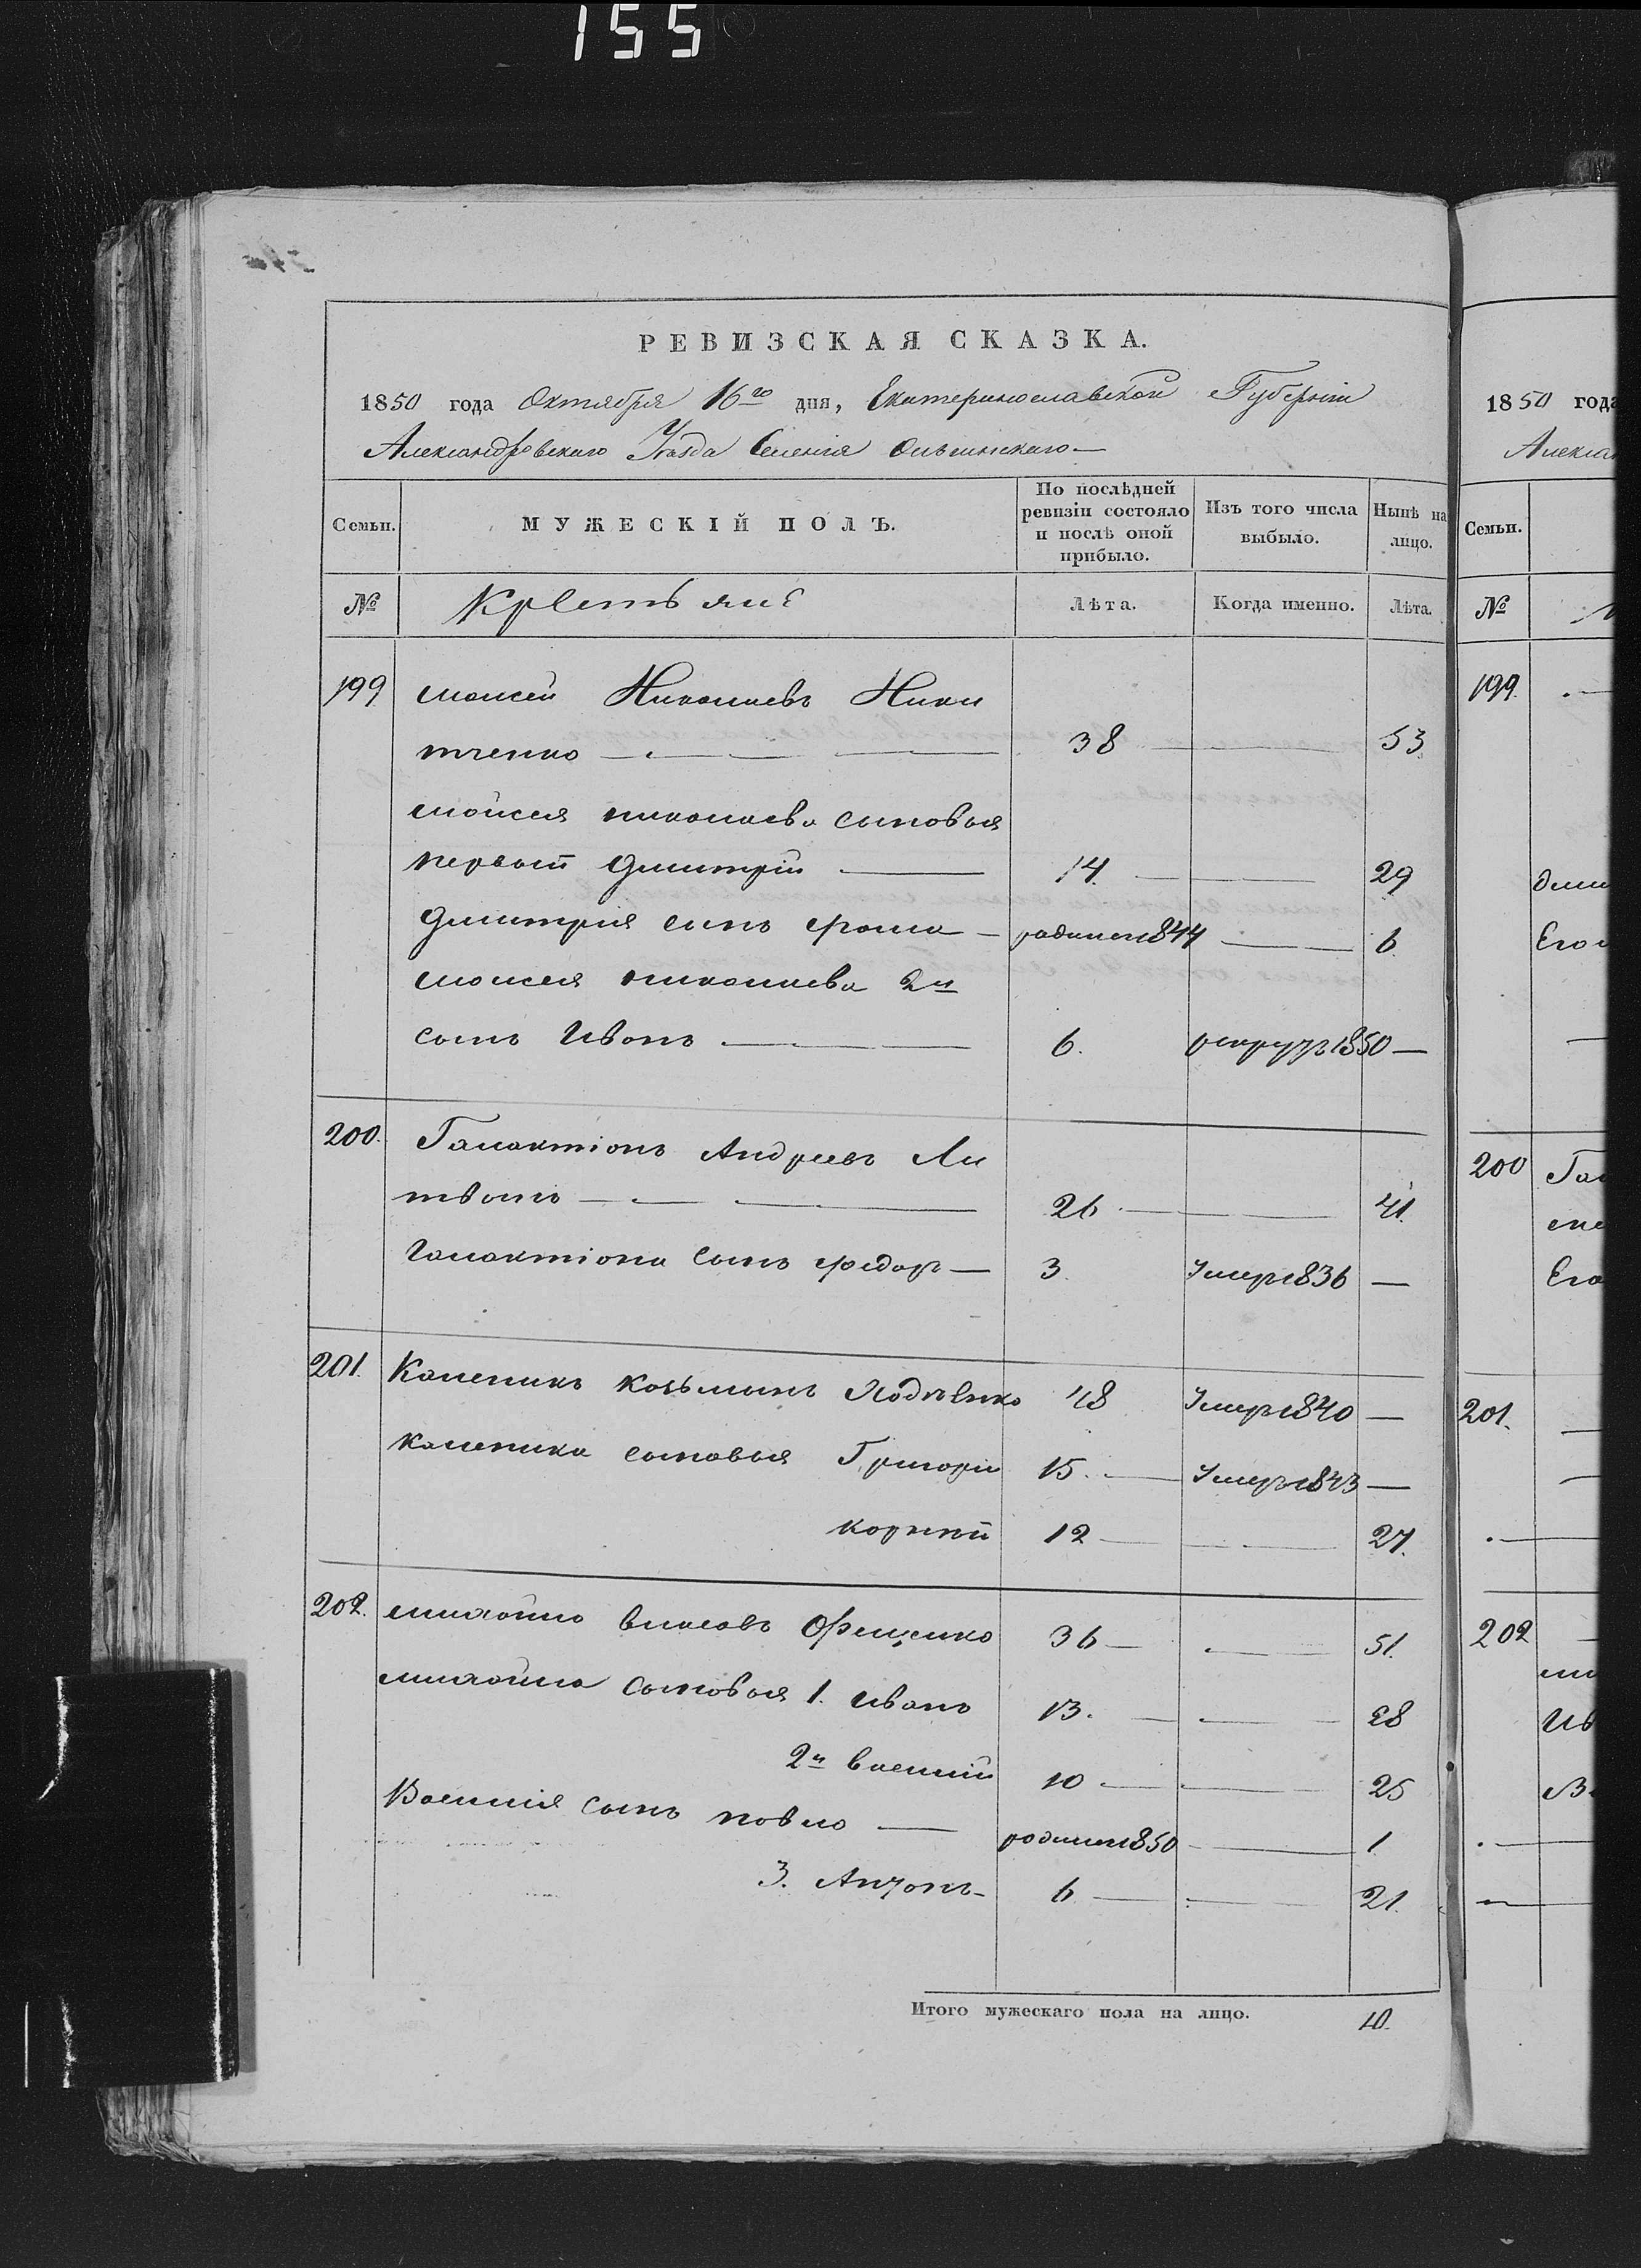 155
РЕВИЗСКАЯ СКАЗКА.
1850 года Октября 16го дня, Екатеринославской Губерніи
Александровскаго Уѣзда Селенія
Семьи.
МУЖЕСКІЙ ПОЛЪ.
По послѣдней ревизіи состояло и послѣ оной прибыло.
Изъ того числа выбыло.
Нынѣ на лицо.
№
Крестьяне
Лѣта.
Когда именно.
Лѣта.
199 Моисей Николаевъ Ники
тченко — 38 — 53.
Моисея николаева сыновья
первый Дмитрій — 14. — 29
Дмитрія сынъ фома — родился 1844 — 6.
Моисея николаева 2й
сынъ Иванъ — 6. рекрутъ 1850 —
200. Галактіонъ Андреевъ Ли
твинъ — 26 — 41.
Галактіона сынъ федоръ — 3. Умеръ 1836 —
201. Каленикъ козьминъ 48 Умеръ 1840 —
каленика сыновья Григорій 15. — Умеръ 1843 —
корній 12 — 27.
202. михайло власовъ 36 — 51.
михайла сыновья 1. иванъ 13. — 28
2й василій 10 — 25
Василія сынъ павло — родился 1850 — 1
3. Антонъ — 6 — 21.
Итого мужескаго пола на лицо. 10.
1850 года
Семьи.
№
199.
Его
200
201.
202